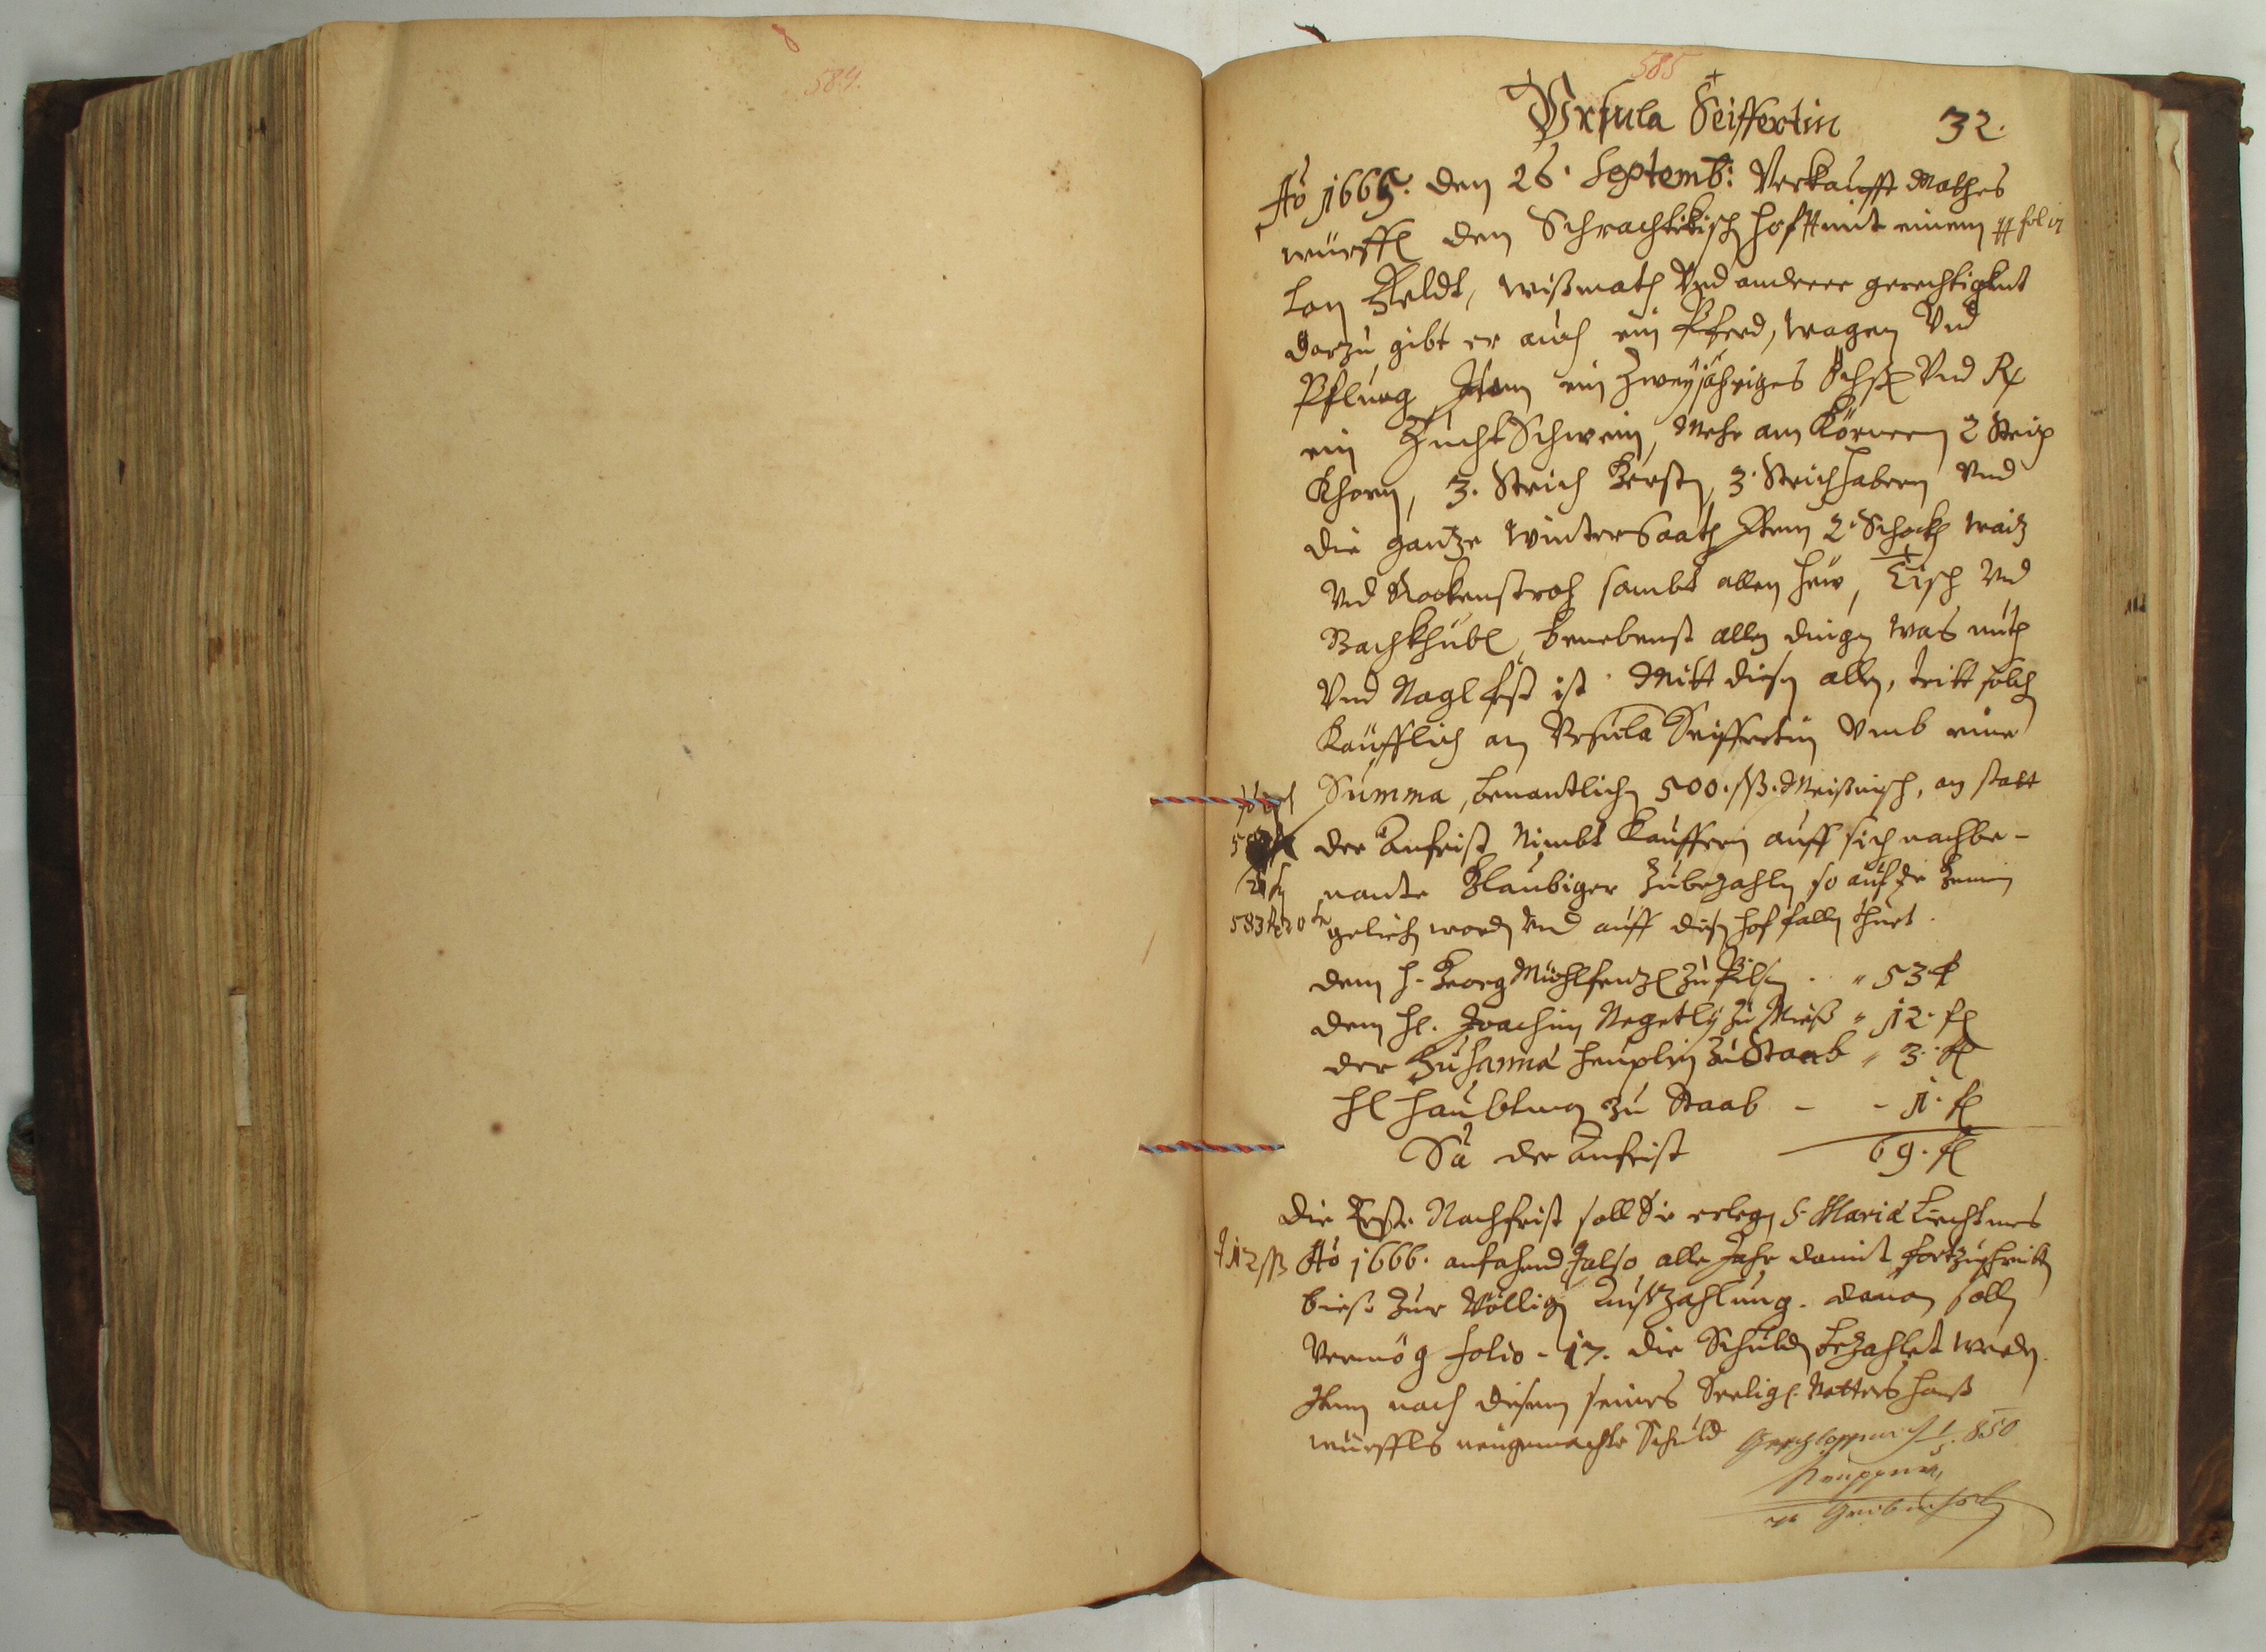 584.
585
Vrsula Seiffertin 32.
Ao 1665. den 26. Septemb: Verkaufft Mathes
würffl den Schrachtikisch hoff mit einem
Lon Feldt, wißmath Vnd anderer gerechtigkeit
darzu gibt er auch ein Pferd, wagen Vnd
Pflueg Item ein Zweyjähriges Öchsl Vnd
ein Zucht Schwein, Mehr am Körnern 2 Strich
Khorn, 3. Strich Gerstn, 3. Strich habern Vnd
die gantze winterSaath Item 2. Schockh waitz
Vnd Rockenstroh sambt allen hew, Tisch Vnd
Bachkhübl, benebenst allen dingen was nieth
Vnd Nagl fest ist. Mitt diesen allen, tritt solch
Käufflich an Vrsula Seiffertin Vmb eine
Summa, benantlichen 500. ßß. Meißnisch, an statt
der Anfrist Nimbt Kaufferin auff sich nachbe-
nante Glaubiger Zubezahln so auf
gelichen worden Vnd auff diesen hof falln thuet.
583 fl 20
dem H. Georg Mühlfenzl zu Pilsen " 53 fl
dem Hl. Joachim Negetly zu Mieß " 12. fl
der Susanna heuplin zu Staab " 3. fl
Hl haubtman zu Staab - - 1. fl
Sa der Anfrist 69. fl
Die Erste Nachfrist soll Sie erlegen S. Maria Liechtmes
12 ßß Ao 1666. anfahend also alle Jahr damit fortzuschreiten
bieß zur Völlig Außzahlung. dauon solln
Vermög folio - 17. die Schulden bezahlet werden.
Item nach diesem seines Seeligl. Vatters hanß
würffls neugemachte Schuld
850